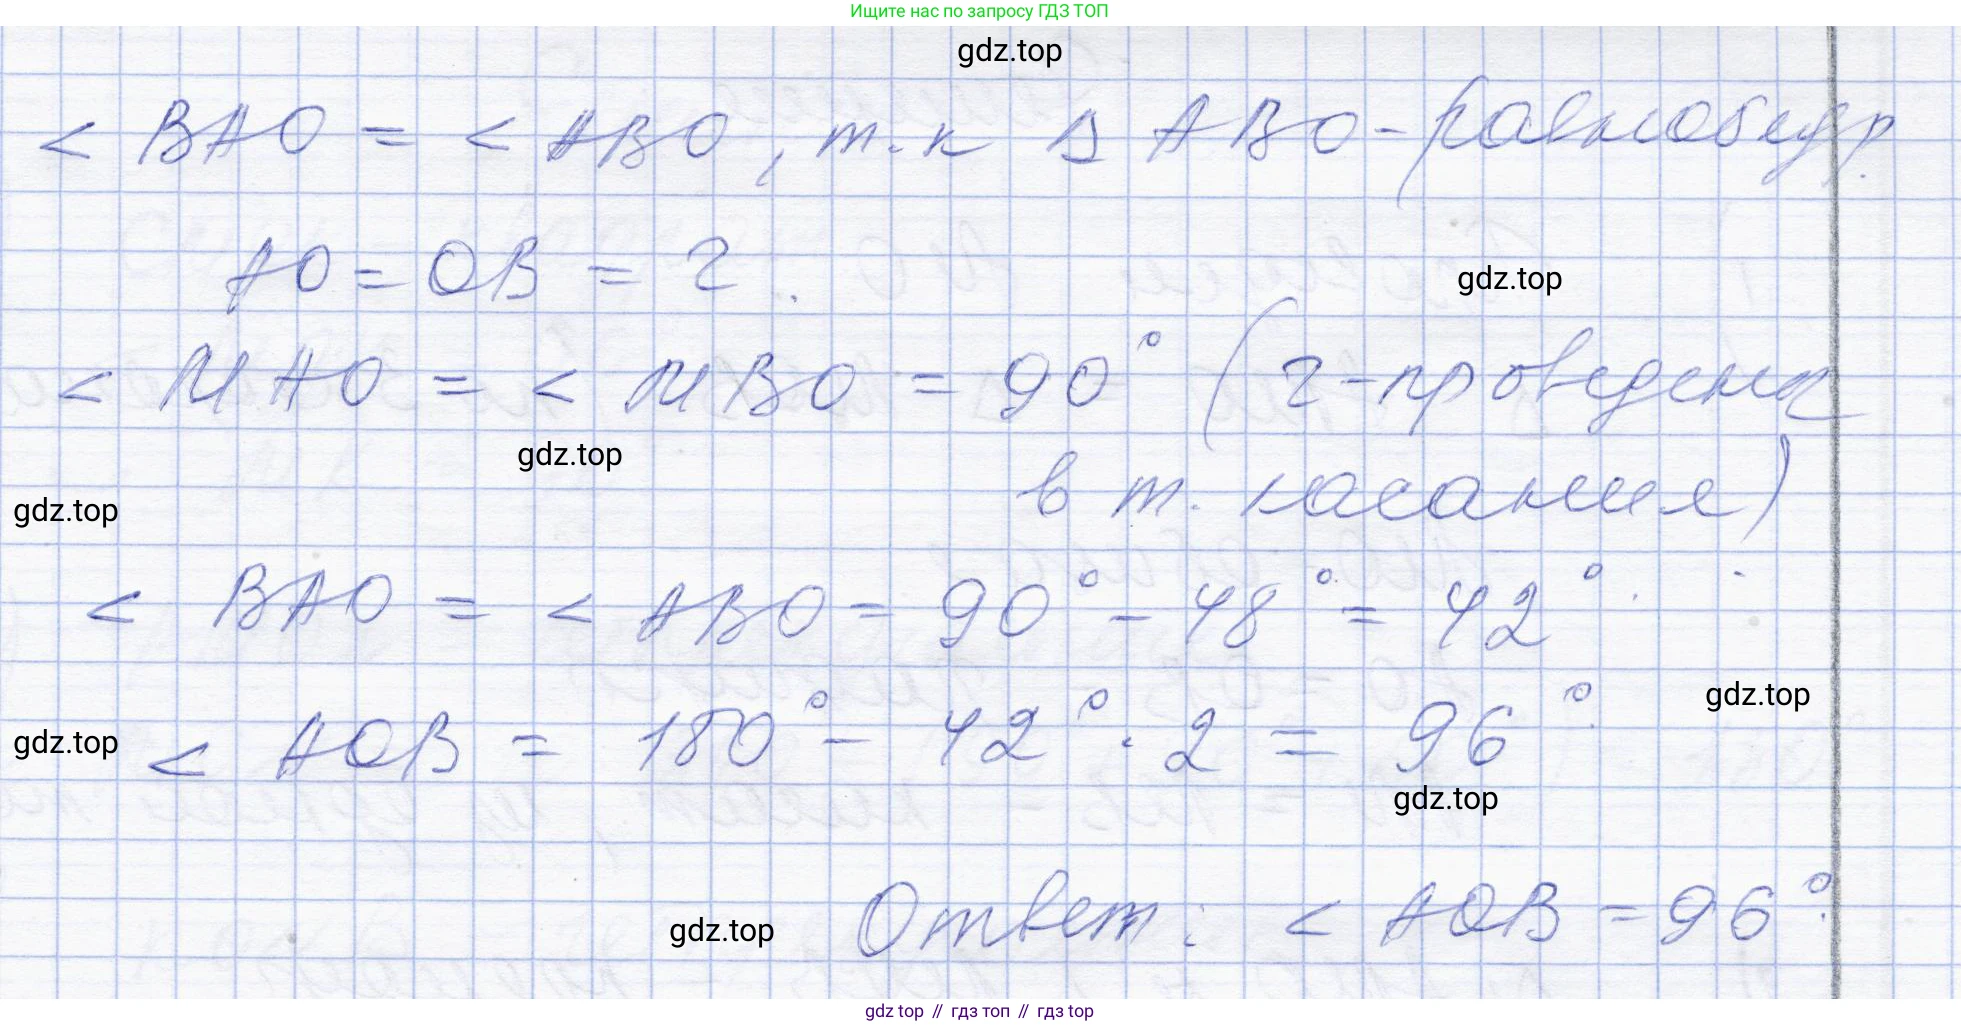 Ищите нас по запросу ГДЗ ТОП
gdz.top
< BAO = < ABO, т.к Δ ABO - равнобедр.
AO = OB = r.
gdz.top
< MAO = < MBO = 90° (r - проведена
gdz.top
в т. касания)
gdz.top
< BAO = < ABO = 90° - 48° = 42°.
gdz.top
< AOB = 180° - 42° · 2 = 96°.
gdz.top
gdz.top
Ответ: < AOB = 96°.
gdz.top
gdz top // гдз топ // gdz top